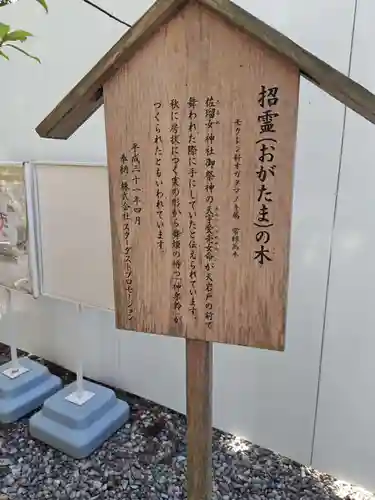 招霊（おがたま）の木
モクレン科オガタマノキ属　常緑高木
佐瑠女神社御祭神の天宇受売命が天岩戸の前で
舞われた際に手にしていたと伝えられています。
秋に房状につく実の形から舞姫の持つ「神楽鈴」が
つくられたともいわれています。
平成三十一年四月
奉納　株式会社スターダストプロモーション